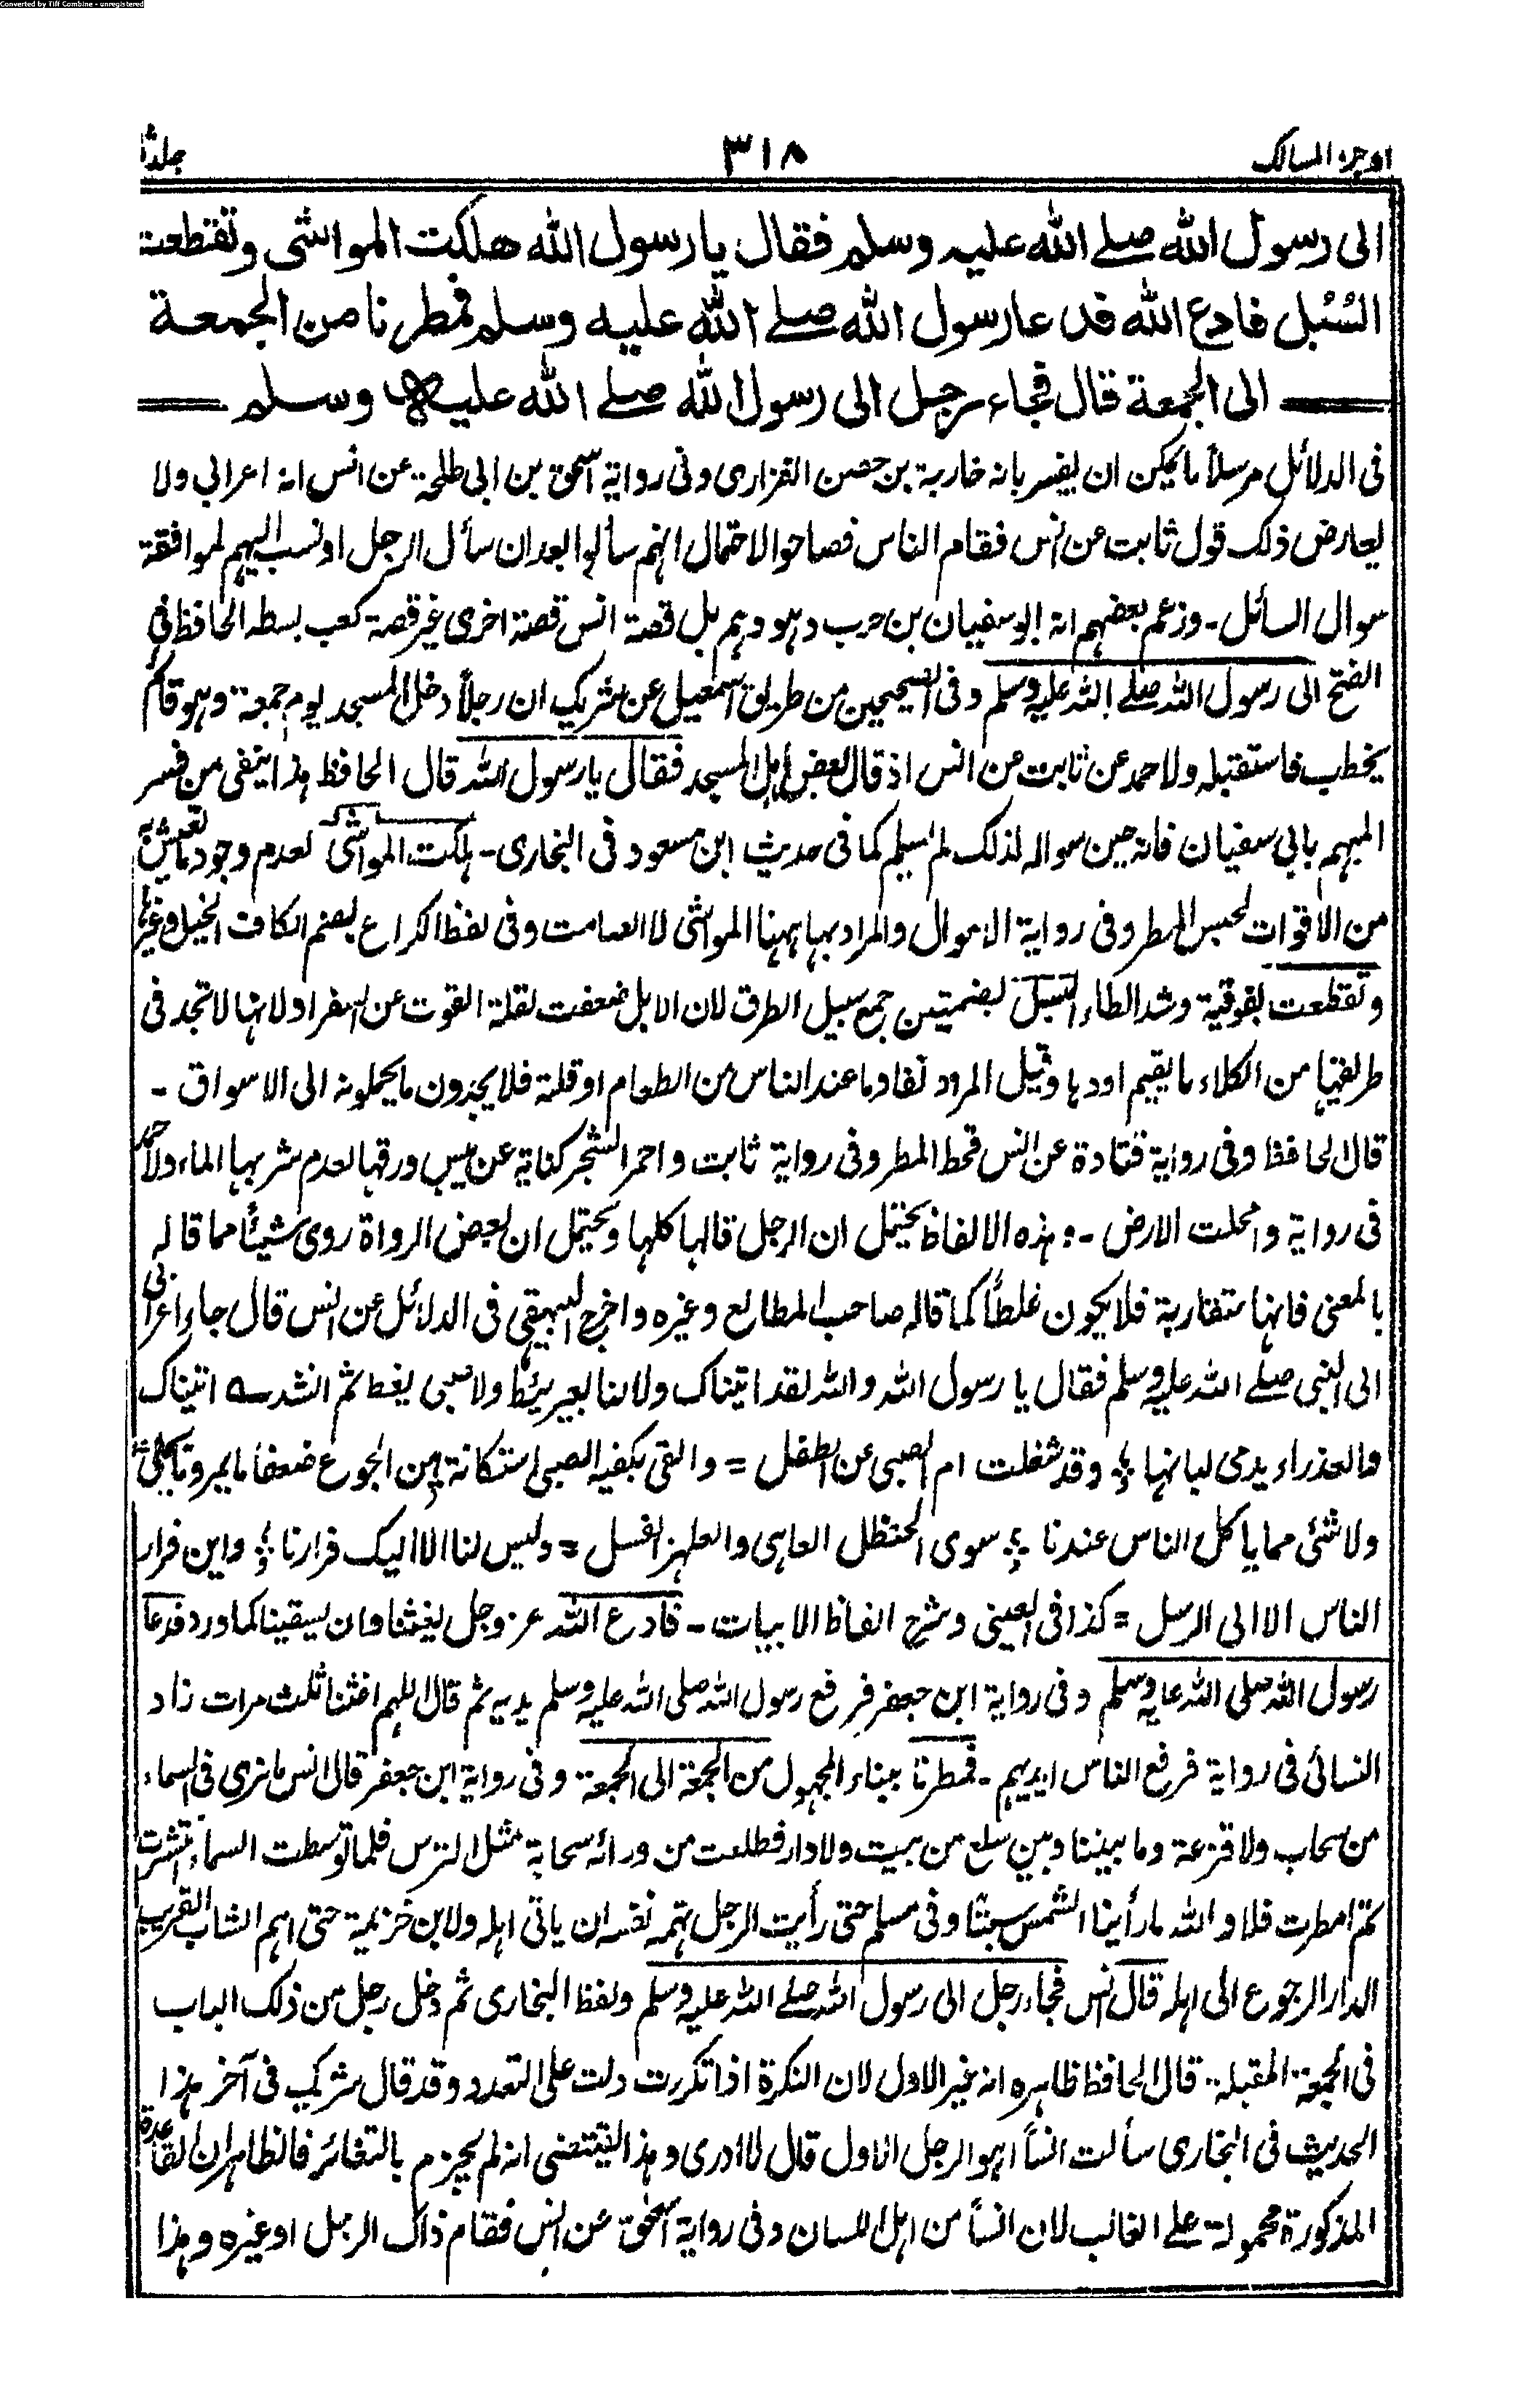 Converted by Tiff Combine - unregistered
اوجز المسالك ٣١٨ جلد
الى رسول الله صلے الله عليه وسلم فقال يا رسول الله هلكت المواشى وتقطعت
السُبُل فادع الله فدعا رسول الله صلے الله عليه وسلم فمطرنا من الجمعة
الى الجمعة قال فجاء رجل الى رسول الله صلے الله عليه وسلم
فى الدلائل مرسلاً ما يمكن ان يفسر بانه خارجة بن حصن الفزارى وفى رواية اسحق بن ابى طلحة عن انس انه اعرابى ولا
يعارض ذلك قول ثابت عن انس فقام الناس فصاحوا لاحتمال انهم سألوا بعد ان سأل الرجل او نسب اليهم لموافقة
سوال السائل ۔ وزعم بعضهم انه ابو سفيان بن حرب وهو وهم بل قصة انس قصة اخرى غير قصة كعب بسطه الحافظ فى
الفتح الى رسول الله صلے الله عليه وسلم وفى الصحيحين من طريق اسمعيل عن شريك ان رجلاً دخل المسجد يوم جمعة وهو قائم
يخطب فاستقبله ولاحمد عن ثابت عن انس اذ قال بعض اهل المسجد فقال يا رسول الله قال الحافظ هذا ينفى من فسر
المبهم بابى سفيان فانه حين سواله لذلك لم يسلم كما فى حديث ابن مسعود فى البخارى ۔ هلكت المواشى لعدم وجود ما تعيش به
من الاقوات لحبس المطر وفى رواية الاموال والمراد بها ههنا المواشى لا الصامت وفى لفظ الكراع بضم الكاف الخيل وغيرها
وتقطعت بفوقية وشد الطاء السبل بضمتين جمع سبيل الطرق لان الابل ضعفت لقلة القوت عن السفر او لانها لا تجد فى
طريقها من الكلاء ما يقيم اودها وقيل المراد نفاد ما عند الناس من الطعام او قلته فلا يجدون ما يحملونه الى الاسواق ۔
قال الحافظ وفى رواية قتادة عن انس قحط المطر وفى رواية ثابت واحمر الشجر كناية عن يبس ورقها لعدم شربها الماء ولاحمد
فى رواية وامحلت الارض ۔ وهذه الالفاظ يحتمل ان الرجل قالها كلها ويحتمل ان بعض الرواة روى شيئاً مما قاله
بالمعنى فانها متقاربة فلا يكون غلطاً كما قاله صاحب المطالع وغيره واخرج البيهقى فى الدلائل عن انس قال جاء اعرابى
الى النبى صلے الله عليه وسلم فقال يا رسول الله والله لقد اتيناك ولا لنا بعير يئط ولا صبى يغط ثم انشد ؎ اتيناك
والعذراء يدمى لبانها ؛ وقد شغلت ام الصبى عن الطفل = والقى بكفيه الصبى استكانة ؛ من الجوع ضعفا ما يمر وما يحلى =
ولا شئى مما يأكل الناس عندنا ؛ سوى الحنظل العاهى والعلهز الغسل = وليس لنا الا اليك فرارنا ؛ واين فرار
الناس الا الى الرسل = كذا فى العينى وشرح الفاظ الابيات ۔ فادع الله عز وجل يغثنا وان يسقينا كما ورد فدعا
رسول الله صلى الله عليه وسلم وفى رواية ابن جعفر فرفع رسول الله صلى الله عليه وسلم يديه ثم قال اللهم اغثنا ثلث مرات زاد
النسائى فى رواية فرفع الناس ايديهم ۔ فمطرنا ببناء المجهول من الجمعة الى الجمعة وفى رواية ابن جعفر قال انس ما نرى فى السماء
من سحاب ولا قزعة وما بيننا وبين سلع من بيت ولا دار فطلعت من ورائه سحابة مثل الترس فلما توسطت السماء انتشرت
ثم امطرت فلا والله ما رأينا الشمس سبتا وفى مسلم حتى رأيت الرجل تهمه نفسه ان ياتى اهله ولابن خزيمة حتى اهم الشاب القريب
الدار الرجوع الى اهله قال انس فجاء رجل الى رسول الله صلے الله عليه وسلم ولفظ البخارى ثم دخل رجل من ذلك الباب
فى الجمعة المقبلة قال الحافظ ظاهره انه غير الاول لان النكرة اذا تكررت دلت على التعدد وقد قال شريك فى آخر هذا
الحديث فى البخارى سألت انساً اهو الرجل الاول قال لا ادرى وهذا يقتضى انه لم يجزم بالتغائر فالظاهر ان القاعدة
المذكورة محمولة على الغالب لان انساً من اهل اللسان وفى رواية اسحق عن انس فقام ذاك الرجل او غيره وهذا